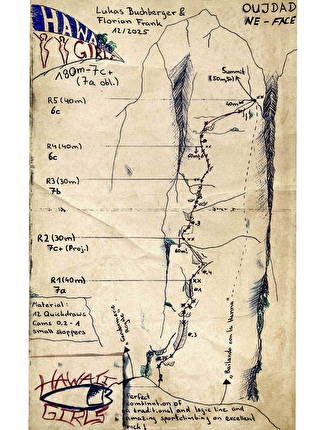 HAWAII
GIRLS
Lukas Buchberger &
Florian Frank
12/2025
OUJDAD
NE - FACE
180m - 7c+
(7a obl.)
Summit
40m
R5 (40m)
6c
R4 (40m)
6c
60m
R3 (30m)
7b
R2 (30m)
7c+ (Proj.)
60m
R1 (40m)
7a
Material:
12 Quickdraws
Cams 0,2 - 1
small stoppers
"Bailando con la Karma"
HAWAII
GIRLS
Perfect
combination of
a traditional and logic line and
amazing sportclimbing on excellent
rock!